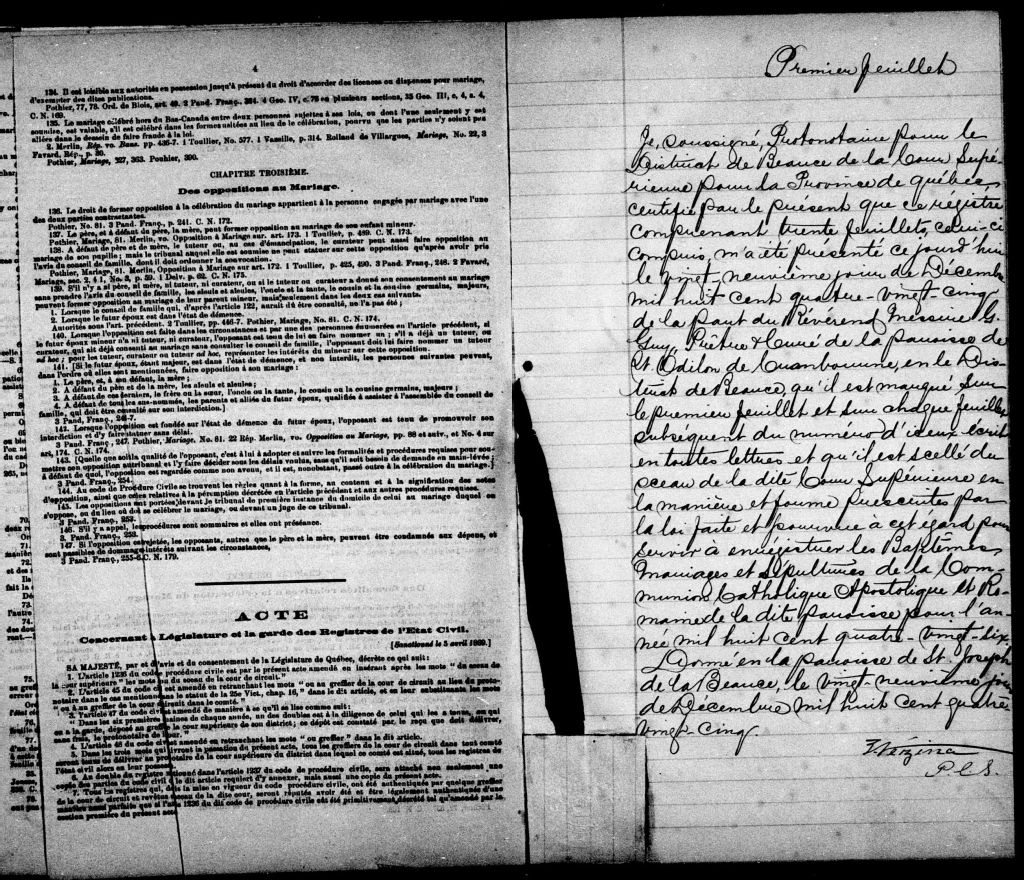 4
134. Il est loisible aux autorités en possession jusqu'à présent du droit d'accorder des licences ou dispenses pour mariage,
d'exempter des dites publications.
Pothier, 77, 78. Ord. de Blois, art. 40. 2 Pand. Franç. 364. 4 Geo. IV, c. 75 en plusieurs sections, 35 Geo. III, c. 4, s. 4,
C. N. 169.
135. Le mariage célébré hors du Bas-Canada entre deux personnes sujettes à ses lois, ou dont l'une seulement y est
soumise, est valable, s'il est célébré dans les formes usitées au lieu de la célébration, pourvu que les parties n'y soient pas
allées dans le dessein de faire fraude à la loi.
2 Merlin, Rép. vo. Bans. pp. 436-7. 1 Toullier, No. 577. 1 Vazeille, p. 314. Rolland de Villargues, Mariage, No. 22, 3
Favard, Rép., p. 30.
Pothier, Mariage, 327, 363. Pouhier, 390.
CHAPITRE TROISIÈME.
Des oppositions au Mariage.
136. Le droit de former opposition à la célébration du mariage appartient à la personne engagée par mariage avec l'une
des deux parties contractantes.
Pothier, No. 81. 3 Pand. Franç., p. 241. C. N. 172.
137. Le père, et à défaut du père, la mère, peut former opposition au mariage de son enfant mineur.
Pothier, Mariage, 81. Merlin, vo. Opposition à Mariage sur. art. 173. 1 Toullier, p. 489. C. N. 173.
138. A défaut de père et de mère, le tuteur ou, au cas d'émancipation, le curateur peut aussi faire opposition au
mariage de son pupille; mais le tribunal auquel elle est soumise ne peut statuer sur cette opposition qu'après avoir pris
l'avis du conseil de famille, dont il doit ordonner la convocation.
Pothier, Mariage, 81. Merlin, Opposition à Mariage sur art. 172. 1 Toullier, p. 425, 490. 3 Pand. Franç., 248. 2 Favard,
Mariage, sec. 2, § 1, No. 3, p. 59. 1 Delv. p. 62. C. N. 175.
139. S'il n'y a ni père, ni mère, ni tuteur, ni curateur, ou si le tuteur ou curateur a donné son consentement au mariage
sans prendre l'avis du conseil de famille, les aïeuls et aïeules, l'oncle et la tante, le cousin et la cousine germains, majeurs,
peuvent former opposition au mariage de leur parent mineur, mais seulement dans les deux cas suivants.
1. Lorsque le conseil de famille qui, d'après l'article 122, aurait dû être consulté, ne l'a pas été;
2. Lorsque le futur époux est dans l'état de démence.
Autorités sous l'art. précédent. 2 Toullier, pp. 446-7. Pothier, Mariage, No. 81. C. N. 174.
140. Lorsque l'opposition est faite dans les circonstances et par une des personnes énumérées en l'article précédent, si
le futur époux mineur n'a ni tuteur, ni curateur, l'opposant est tenu de lui en faire nommer un; s'il a déjà un tuteur, ou
curateur, qui ait déjà consenti au mariage sans consulter le conseil de famille, l'opposant doit lui faire nommer un tuteur
ad hoc; pour les tuteur, curateur ou tuteur ad hoc, représenter les intérêts du mineur sur cette opposition.
141. [Si le futur époux, étant majeur, est dans l'état de démence, et non interdit, les personnes suivantes peuvent,
dans l'ordre où elles sont mentionnées, faire opposition à son mariage:
1. Le père, et, à son défaut, la mère;
2. A défaut du père et de la mère, les aïeuls et aïeules;
3. A défaut de ces derniers, le frère ou la sœur, l'oncle ou la tante, le cousin ou la cousine germains, majeurs;
4. A défaut de tous les sus-nommés, les parents et alliés du futur époux, qualifiés à assister à l'assemblée du conseil de
famille, qui doit être consulté sur son interdiction.]
3 Pand. Franç., 246-7.
142. Lorsque l'opposition est fondée sur l'état de démence du futur époux, l'opposant est tenu de promouvoir son
interdiction et d'y faire statuer sans délai.
3 Pand. Franç., 247. Pothier, Mariage, No. 81. 22 Rép. Merlin, vo. Opposition au Mariage, pp. 88 et suiv., et No. 4 sur
art. 174. C. N. 174.
143. [Quelle que soit la qualité de l'opposant, c'est à lui à adopter et suivre les formalités et procédures requises pour sou-
mettre son opposition au tribunal et l'y faire décider sous les délais voulus, sans qu'il soit besoin de demande en main-levée;
à défaut de quoi, l'opposition est regardée comme non avenue, et il est, nonobstant, passé outre à la célébration du mariage.]
3 Pand. Franç., 254.
144. Au code de Procédure Civile se trouvent les règles quant à la forme, au contenu et à la signification des actes
d'opposition, ainsi que celles relatives à la péremption décrétée en l'article précédent et aux autres procédures requises.
145. Les oppositions sont portées devant le tribunal de première instance du domicile de celui au mariage duquel on
s'oppose, ou du lieu où doit se célébrer le mariage, ou devant un juge de ce tribunal.
3 Pand. Franç., 253.
146. S'il y a appel, les procédures sont sommaires et elles ont préséance.
3. Pand. Franç., 258.
147. Si l'opposition est rejetée, les opposants, autres que le père et la mère, peuvent être condamnés aux dépens, et
sont passibles de dommages-intérêts suivant les circonstances,
3 Pand. Franç., 255-6. C. N. 179.
ACTE
Concernant la Législature et la garde des Registres de l'Etat Civil.
[Sanctionné le 5 avril 1869.]
SA MAJESTÉ, par et de l'avis et du consentement de la Législature de Québec, décrète ce qui suit:
1. L'article 1236 du code de procédure civile est par le présent acte amendé en insérant après les mots "du sceau de
la cour supérieure" les mots "ou du sceau de la cour de circuit."
2. L'article 45 du code civil est amendé en retranchant les mots "ou au greffier de la cour de circuit au lieu du proto-
notaire dans le cas mentionné dans le statut de la 25e Vict., chap. 16," dans le dit article, et en leur substituant les mots
"ou à un greffier de la cour de circuit dans le comté."
3. L'article 47 du code civil est amendé de manière à ce qu'il se lise comme suit:
"Dans les six premières semaines de chaque année, un des doubles est à la diligence de celui qui les a tenus, ou qui
en a la garde, déposé au greffe de la cour supérieure de son district; ce dépôt est constaté par le reçu que doit délivrer,
sans frais, le protonotaire de la cour."
4. L'article 45 du code civil est amendé en retranchant les mots "ou greffier" dans le dit article.
5. Dans les trois mois qui suivront la passation du présent acte, tous les greffiers de la cour de circuit dans tout comté
seront tenus de délivrer au protonotaire de la cour supérieure du district dans lequel ce comté est situé, tous les registres de
l'état civil alors en leur possession.
6. Au double du registre mentionné dans l'article 1237 du code de procédure civile, sera attaché non seulement une
copie des parties du code civil que le dit article requiert d'y annexer, mais aussi une copie du présent acte.
7. Tous les registres qui, depuis la mise en vigueur du code procédure civile, ont été authentiqués par quelque greffier
de la cour de circuit et revêtus du sceau de la dite cour, seront réputés avoir été et être légalement authentiqués d'une
manière aussi parfaite que si l'article 1236 du dit code de procédure civile eût été primitivement décrété tel qu'amendé par la
section première du présent acte.
Premier feuillet
Je, soussigné, Protonotaire pour le
District de Beauce de la Cour Supé-
rieure pour la Province de Québec,
certifie par le présent que ce registre
comprenant trente feuillets, celui-ci
compris, m'a été présenté ce jourd'hui
le vingt-neuvième jour de Décembre
mil huit cent quatre-vingt-cinq
de la part du Révérend Messire G.
Guy, Prêtre & Curé de la paroisse de
St. Odilon de Cranbourne, en le Dis-
trict de Beauce, qu'il est marqué sur
le premier feuillet et sur chaque feuillet
subséquent du numéro d'iceux écrit
en toutes lettres et qu'il est scellé du
sceau de la dite Cour Supérieure en
la manière et forme prescrites par
la loi faite et pourvue à cet égard pour
servir à enrégistrer les Baptêmes
Mariages et Sépultures de la Com-
munion Catholique Apostolique et Ro-
maine de la dite paroisse pour l'an-
née mil huit cent quatre-vingt-six.
Donné en la paroisse de St. Joseph
de la Beauce, le vingt-neuvième jour
de Décembre mil huit cent quatre
vingt-cinq
Vézina
P. C. S.